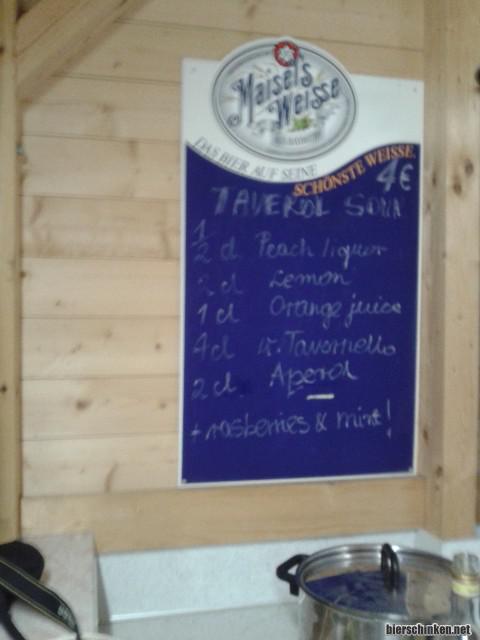 Maisel's
Weisse
DAS BIER AUF SEINE
SCHÖNSTE WEISSE.
4€
TAVEROL SOUR
1
2 cl Peach liquor
2 cl Lemon
1 cl Orange juice
4 cl w. Tavernello
2 cl Aperol
+ rasberries & mint!
bierschinken.net